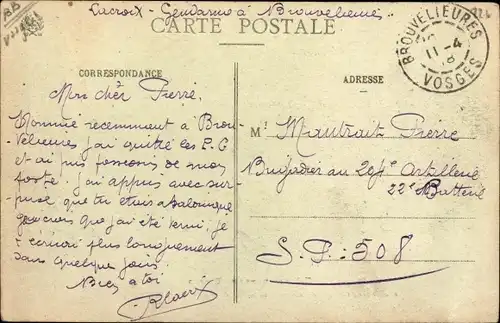 Lacroix - Gendarme à Brouvelieures
CARTE POSTALE
BROUVELIEURES
11 - 4
VOSGES
CORRESPONDANCE
ADRESSE
Mon cher Pierre,
Nommé recemment à Brou-
velieures j'ai quitté les P.C
et ai pris possession de mon
poste. J'ai appris avec sur-
prise que tu étais à Salonique
que j'ai été
écrirai plus longuement
dans quelques jours.
Bien à toi
RLacroix
Mr Mautrait Pierre
Brigadier au Artillerie
22e Batterie
S. P. : 508